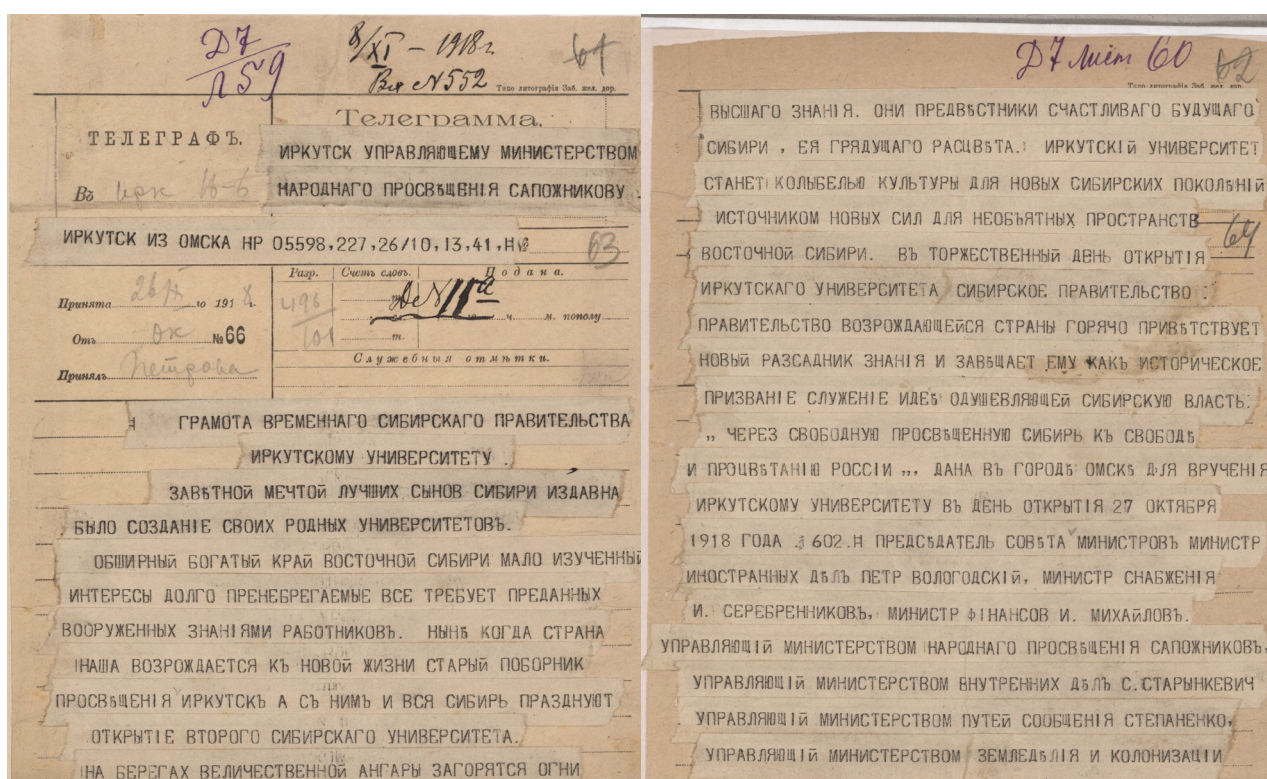 Д7
Л59
8/XI – 1918 г.
Вх №552
61
Типо-литографія Заб. жел. дор.
ТЕЛЕГРАФЪ.
Телеграмма.
ИРКУТСК УПРАВЛЯЮЩЕМУ МИНИСТЕРСТВОМ
Въ ирк 16-6
НАРОДНАГО ПРОСВѢЩЕНІЯ САПОЖНИКОВУ .
ИРКУТСК ИЗ ОМСКА НР 05598,227,26/10,13,41,Н№
63
Разр. Счетъ словъ. Подана.
Принята 26/X 1918 г.
496
101
ч. м. пополу
Отъ ок №66
т.
Служебныя отмѣтки.
Принялъ Петрова
Н ГРАМОТА ВРЕМЕННАГО СИБИРСКАГО ПРАВИТЕЛЬСТВА
ИРКУТСКОМУ УНИВЕРСИТЕТУ .
ЗАВѢТНОЙ МЕЧТОЙ ЛУЧШИХ СЫНОВ СИБИРИ ИЗДАВНА
БЫЛО СОЗДАНІЕ СВОИХ РОДНЫХ УНИВЕРСИТЕТОВЪ.
ОБШИРНЫЙ БОГАТЫЙ КРАЙ ВОСТОЧНОЙ СИБИРИ МАЛО ИЗУЧЕННЫЙ
ИНТЕРЕСЫ ДОЛГО ПРЕНЕБРЕГАЕМЫЕ ВСЕ ТРЕБУЕТ ПРЕДАННЫХ
ВООРУЖЕННЫХ ЗНАНІЯМИ РАБОТНИКОВЪ. НЫНѢ КОГДА СТРАНА
НАША ВОЗРОЖДАЕТСЯ КЪ НОВОЙ ЖИЗНИ СТАРЫЙ ПОБОРНИК
ПРОСВѢЩЕНІЯ ИРКУТСКЪ А СЪ НИМЪ И ВСЯ СИБИРЬ ПРАЗДНУЮТ
ОТКРЫТІЕ ВТОРОГО СИБИРСКАГО УНИВЕРСИТЕТА.
НА БЕРЕГАХ ВЕЛИЧЕСТВЕННОЙ АНГАРЫ ЗАГОРЯТСЯ ОГНИ
Д7 лист 60
62
Типо-литографія Заб. жел. дор.
ВЫСШАГО ЗНАНІЯ. ОНИ ПРЕДВѢСТНИКИ СЧАСТЛИВАГО БУДУЩАГО
СИБИРИ , ЕЯ ГРЯДУЩАГО РАСЦВѢТА. ИРКУТСКІЙ УНИВЕРСИТЕТ
СТАНЕТ КОЛЫБЕЛЬЮ КУЛЬТУРЫ ДЛЯ НОВЫХ СИБИРСКИХ ПОКОЛѢНІЙ
ИСТОЧНИКОМ НОВЫХ СИЛ ДЛЯ НЕОБЪЯТНЫХ ПРОСТРАНСТВ
64
ВОСТОЧНОЙ СИБИРИ. ВЪ ТОРЖЕСТВЕННЫЙ ДЕНЬ ОТКРЫТІЯ
ИРКУТСКАГО УНИВЕРСИТЕТА СИБИРСКОЕ ПРАВИТЕЛЬСТВО .
ПРАВИТЕЛЬСТВО ВОЗРОЖДАЮЩЕЙСЯ СТРАНЫ ГОРЯЧО ПРИВѢТСТВУЕТ
НОВЫЙ РАЗСАДНИК ЗНАНІЯ И ЗАВѢЩАЕТ ЕМУ КАКЪ ИСТОРИЧЕСКОЕ
ПРИЗВАНІЕ СЛУЖЕНІЕ ИДЕѢ ОДУШЕВЛЯЮЩЕЙ СИБИРСКУЮ ВЛАСТЬ.
„ ЧЕРЕЗ СВОБОДНУЮ ПРОСВѢЩЕННУЮ СИБИРЬ КЪ СВОБОДѢ
И ПРОЦВѢТАНІЮ РОССІИ „. ДАНА ВЪ ГОРОДѢ ОМСКѢ ДЛЯ ВРУЧЕНІЯ
ИРКУТСКОМУ УНИВЕРСИТЕТУ ВЪ ДЕНЬ ОТКРЫТІЯ 27 ОКТЯБРЯ
1918 ГОДА 602.Н ПРЕДСѢДАТЕЛЬ СОВѢТА МИНИСТРОВЪ МИНИСТР
ИНОСТРАННЫХ ДѢЛЪ ПЕТР ВОЛОГОДСКІЙ, МИНИСТР СНАБЖЕНІЯ
И. СЕРЕБРЕННИКОВЪ, МИНИСТР ФІНАНСОВ И. МИХАЙЛОВЪ.
УПРАВЛЯЮЩІЙ МИНИСТЕРСТВОМ НАРОДНАГО ПРОСВѢЩЕНІЯ САПОЖНИКОВЪ,
УПРАВЛЯЮЩІЙ МИНИСТЕРСТВОМ ВНУТРЕННИХ ДѢЛЪ С.СТАРЫНКЕВИЧ
УПРАВЛЯЮЩІЙ МИНИСТЕРСТВОМ ПУТЕЙ СООБЩЕНІЯ СТЕПАНЕНКО,
УПРАВЛЯЮЩІЙ МИНИСТЕРСТВОМ ЗЕМЛЕДѢЛІЯ И КОЛОНИЗАЦІИ